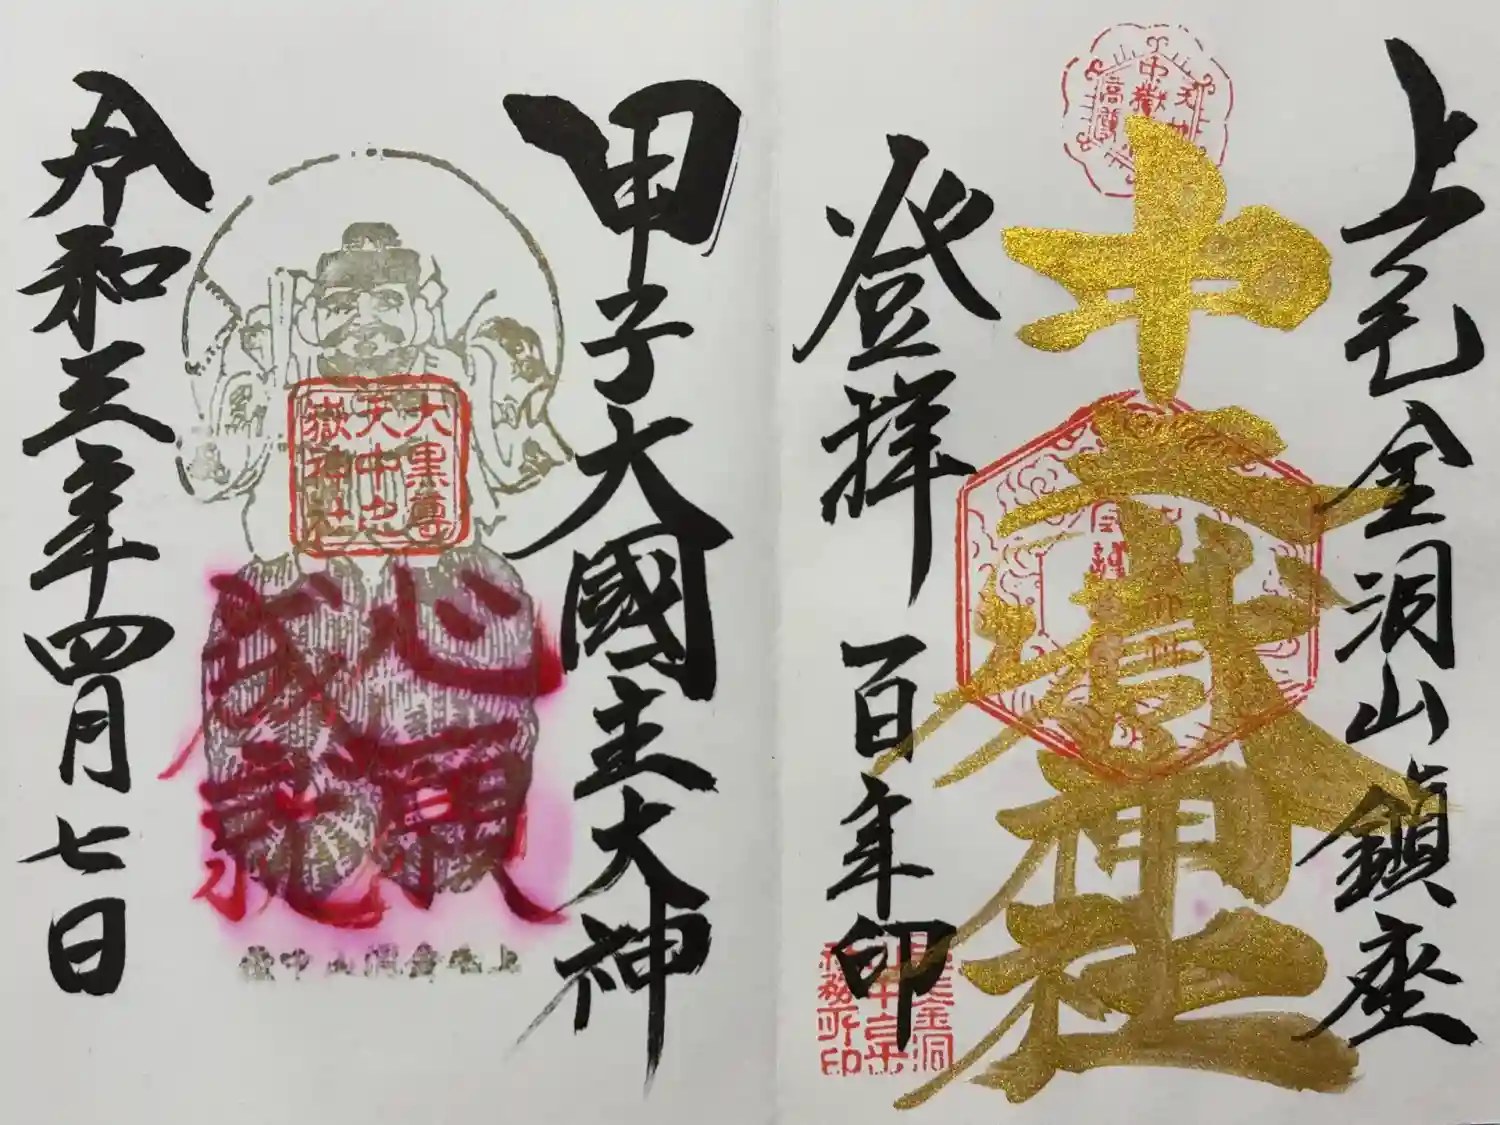 上毛金洞山鎮座
中之嶽神社
登拝
百年印
甲子大國主大神
大黒尊
天中之
嶽神社
心願
成就
令和三年四月七日